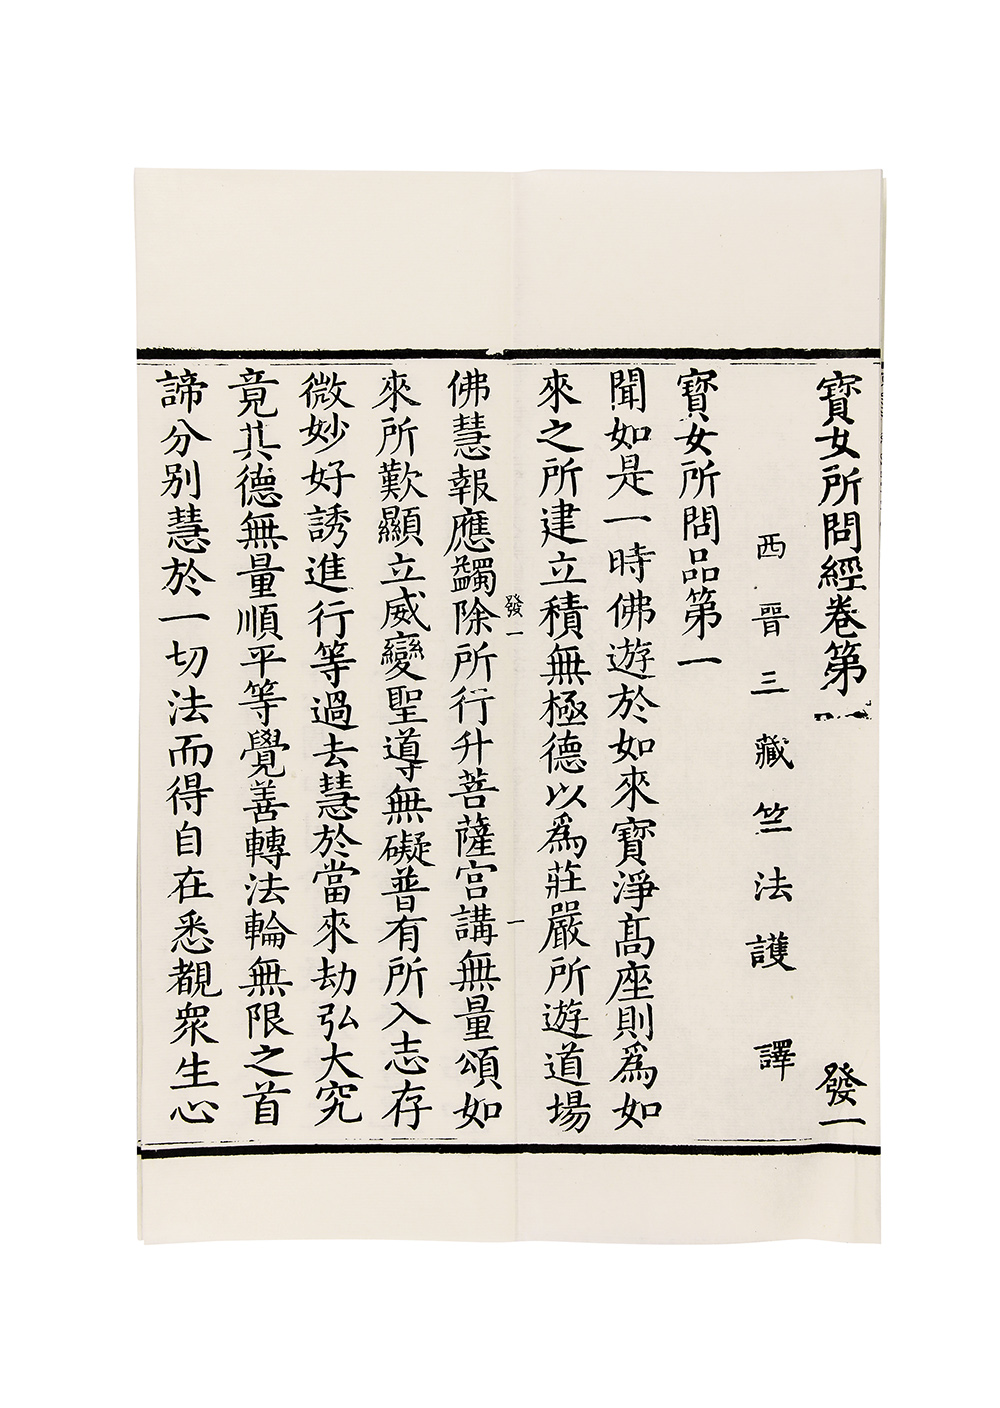 寶女所問經卷第 發一
西晉三藏竺法護 譯
寶女所問品第一
聞如是一時佛遊於如來寶淨高座則為如
來之所建立積無極德以為莊嚴所遊道場
發一 一
佛慧報應蠲除所行升菩薩宮講無量頌如
來所歎顯立威變聖導無礙普有所入志存
微妙好誘進行等過去慧於當來劫弘大究
竟其德無量順平等覺善轉法輪無限之首
諦分別慧於一切法而得自在悉覩眾生心